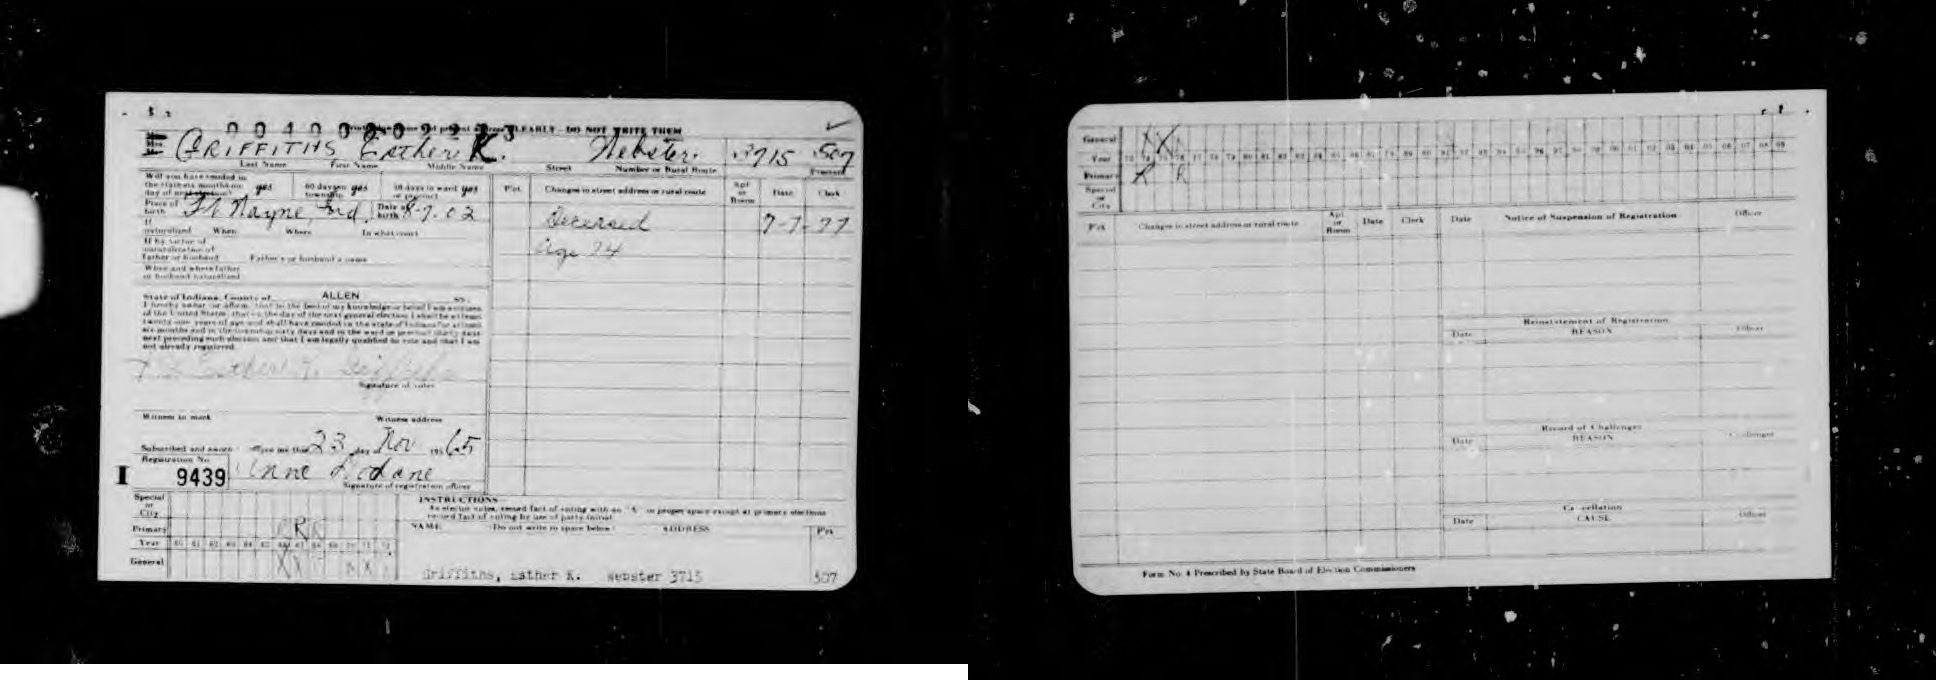 GRIFFITHS Esther K. Webster. 3715 507
Last Name First Name Middle Name Street Number or Rural Route Precinct
Will you have resided in
the state six months on yes 60 days in yes 30 days in ward yes
day of next election? township or precinct
Pct. Changes in street address or rural route Apt. or Room Date Clerk
Place of birth Ft Wayne, Ind. Date of birth 8-7-02
Deceased 7-7-77
age 74
If naturalized When Where In what court
If by virtue of
naturalization of
father or husband Father's or husband's name
When and where father
or husband naturalized
State of Indiana, County of ALLEN ss:
I hereby swear or affirm, that to the best of my knowledge or belief I am a citizen
of the United States; that on the day of the next general election I shall be at least
twenty-one years of age and shall have resided in the state of Indiana for at least
six months and in the township sixty days and in the ward or precinct thirty days
next preceding such election and that I am legally qualified to vote and that I am
not already registered.
Signature of voter
Witness to mark Witness address
Subscribed and sworn before me this 23 day of Nov 1965
Registration No.
I 9439 Anne
Signature of registration officer
Special or City
Primary R R
Year 60 61 62 63 64 65 66 67 68 69 70 71 72
General X X X
INSTRUCTIONS
As elector votes, record fact of voting with an "X" in proper space except at primary elections
record fact of voting by use of party initial.
NAME (Do not write in space below) ADDRESS Pct.
Griffiths, Esther K. Webster 3715 507
General X X
Year 73 74 75 76 77 78 79 80 81 82 83 84 85 86 87 88 89 90 91 92 93 94 95 96 97 98 99 00 01 02 03 04 05 06 07 08 09
Primary R R
Special or City
Pct. Changes in street address or rural route Apt. or Room Date Clerk
Date Notice of Suspension of Registration Officer
Reinstatement of Registration
Date REASON Officer
Record of Challenges
Date REASON Challenger
Cancellation
Date CAUSE Officer
Form No. 4 Prescribed by State Board of Election Commissioners